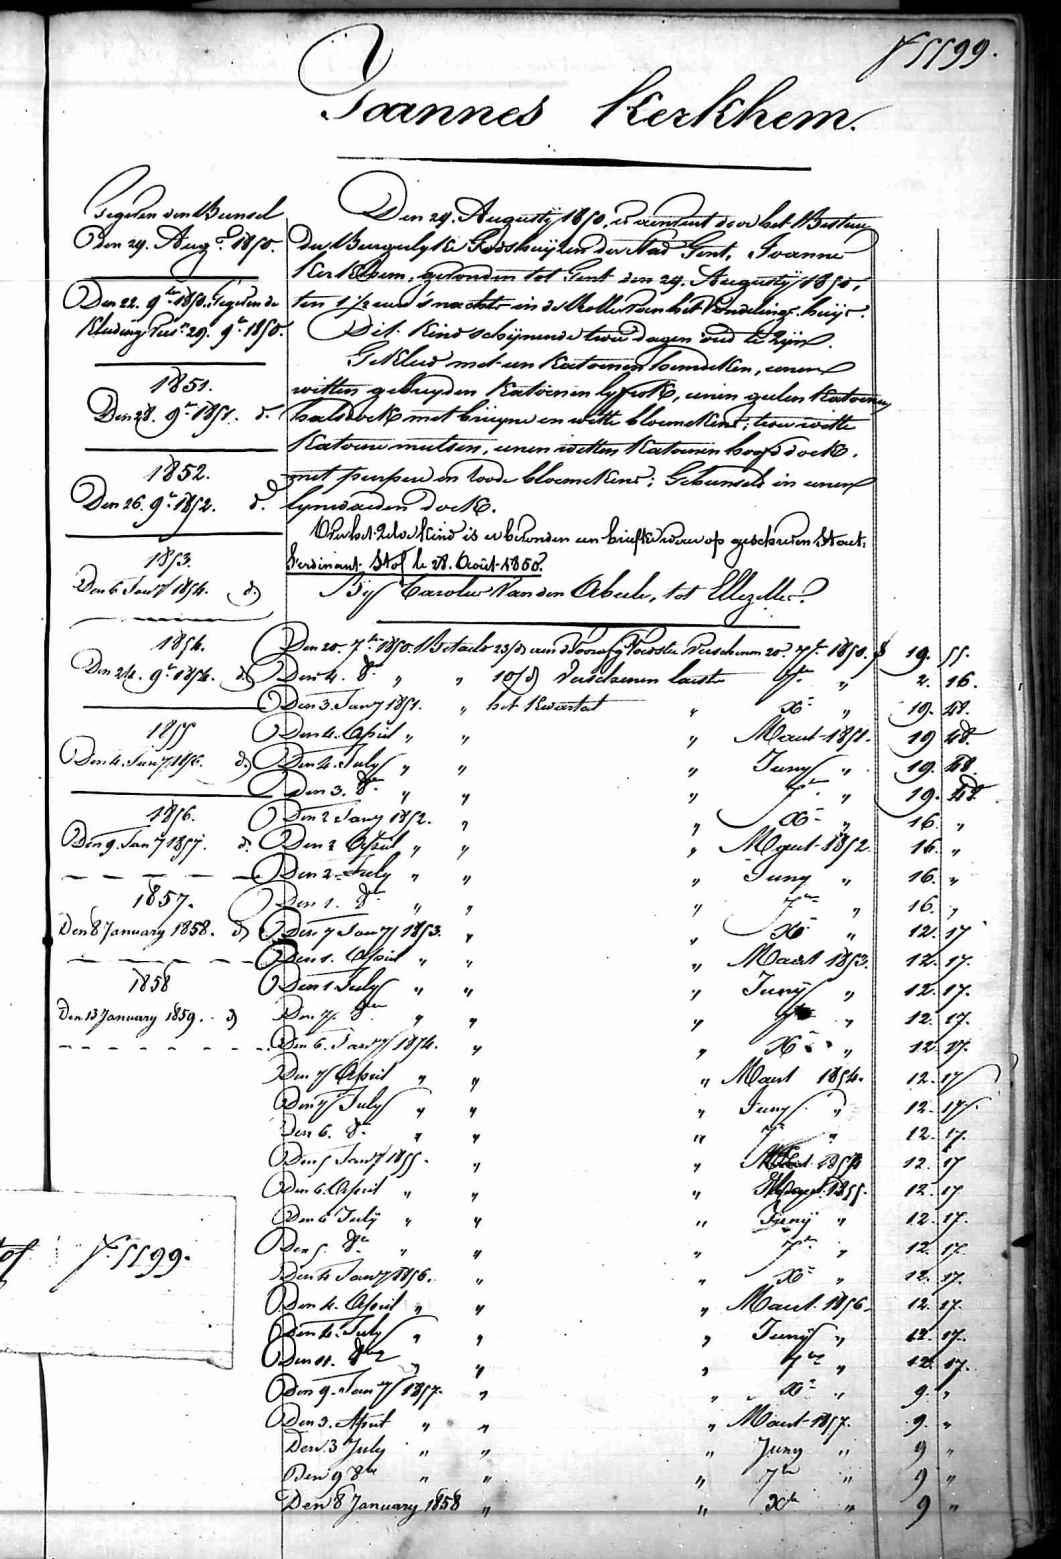 N° 1199.
Joannes Kerkhem.
Gegeven den Bunsel
Den 29. Aug. 1850.
Den 22. 9ber 1850. Gegeven de
Kleding 29. 9ber 1850.
1851.
Den 28. 9ber 1851. d.
1852.
Den 26. 9ber 1852. d.
1853.
Den 6 Jany 1854. d.
1854.
Den 24. 9ber 1854. d.
1855
Den 4. Jany 1856. d.
1856.
Den 9. Jany 1857. d.
1857.
Den 8 January 1858. d.
1858
Den 13 January 1859. d.
Den 29. Augusty 1850, is door het Bestuur
der Burgerlyke Godshuyzen der Stad Gent, Joannes
Kerkhem, gevonden tot Gent den 29. Augusty 1850,
ten 1 1/2 ure 's nachts in de Rolle van het Vondelings-huys.
Dit kind schynende twee dagen oud te zyn.
Gekleed met een katoenen hemdeken, eenen
witten gebreyden katoenen lyfrok, eenen geelen katoenen
halsdoek met bruyne en witte bloemekens; twee witte
katoene mutsen, eenen witten katoenen hoofddoek,
met purpere en roode bloemekens; Gebunseld in eenen
lynwaeden doek.
Op het zelve kind is er bevonden een briefke waer op geschreven staet:
Ferdinant Stof le 28. Août 1850.
By Carolus Van den Abeele, tot Ellezelles.
Den 20. 7ber 1850. Betaeld 23/d aen d' Voorafg Voedster Verschenen 20. 7ber 1850. f 19. 55.
Den 4. 8ber " " 10/d Verschenen laeste 7ber " 2. 16.
Den 3. Jany 1851. " het Kwartael " Xber " 19. 48.
Den 4. April " " " Maert 1851. 19 48.
Den 4. July " " " Juny " 19. 48.
Den 3. 8ber " " " 7ber " 19. 48.
Den 2 Jany 1852. " " Xber " 16. "
Den 2 April " " " Maert 1852. 16. "
Den 2 July " " " Juny " 16. "
Den 1. 8ber " " " 7ber " 16. "
Den 7 Jany 1853. " " Xber " 12. 17
Den 1. April " " " Maert 1853. 12. 17.
Den 1 July " " " Juny " 12. 17.
Den 7. 8ber " " " 7ber " 12. 17.
Den 6. Jany 1854. " " Xber " 12 17.
Den 7 April " " " Maert 1854. 12. 17
Den 7 July " " " Juny " 12. 17.
Den 6. 8ber " " " 7ber " 12. 17.
Den 5 Jany 1855. " " 12. 17
Den 6. April " " " Maert 1855. 12. 17
Den 6 July " " " Juny " 12. 17.
Den 5. 8ber " " " 7ber " 12. 17.
Den 4 Jany 1856. " " Xber " 12. 17.
Den 4. April " " " Maert 1856. 12. 17.
Den 4. July " " " Juny " 12. 17.
Den 11. 8ber " " " 7ber " 12. 17.
Den 9. Jany 1857. " " Xber " 9. "
Den 3. April " " " Maert 1857. 9. "
Den 3 July " " " Juny " 9 "
Den 9 8ber " " " 7ber " 9 "
Den 8 January 1858 " " Xber " 9 "
of N° 1199.